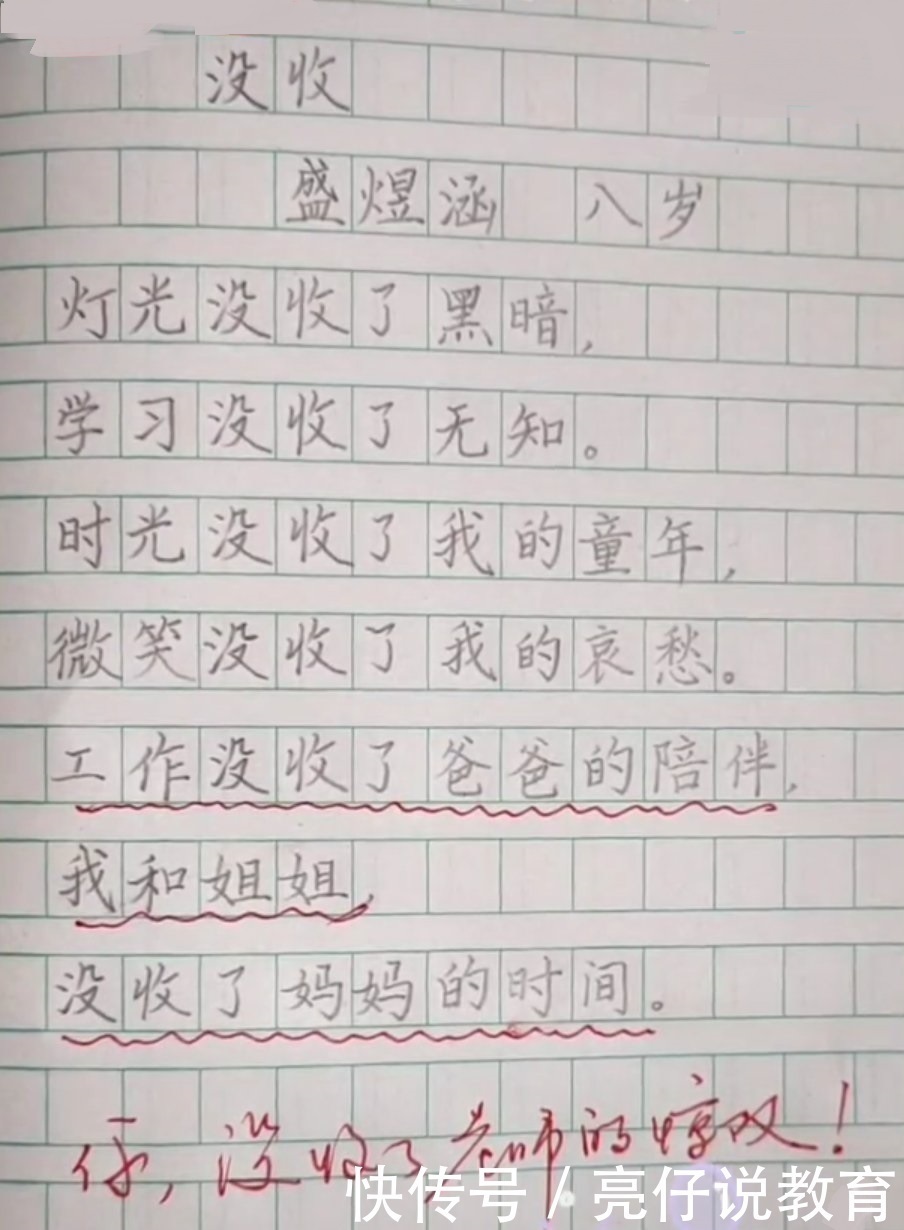 没收
盛煜涵 八岁
灯光没收了黑暗,
学习没收了无知。
时光没收了我的童年,
微笑没收了我的哀愁。
工作没收了爸爸的陪伴,
我和姐姐,
没收了妈妈的时间。
你,没收了老师的惊叹!
快传号/亮仔说教育